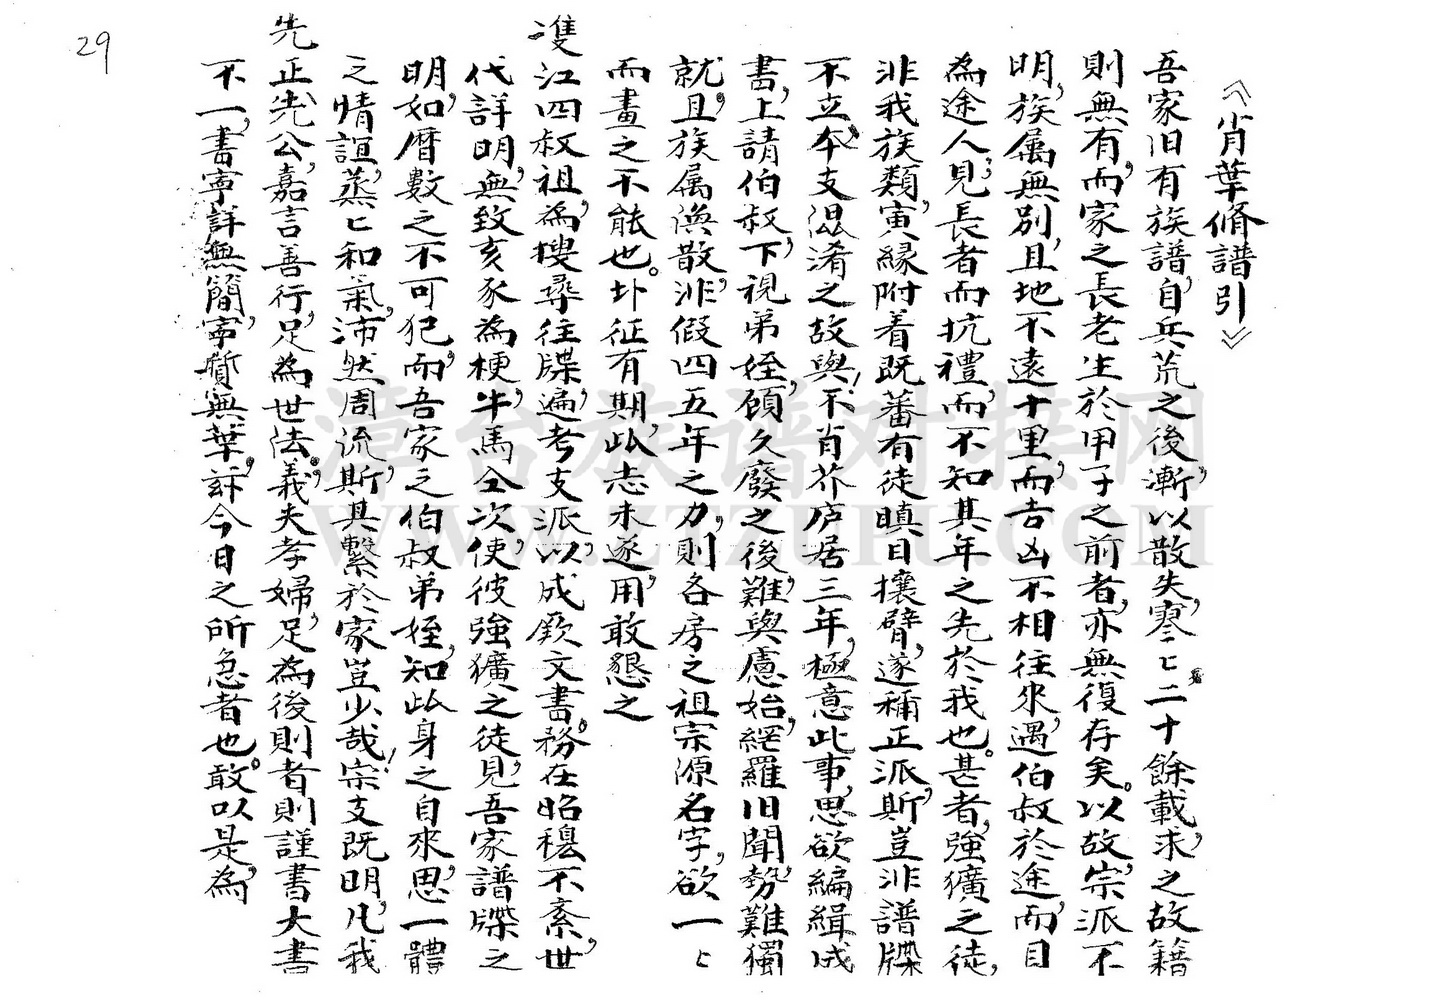 29
《肖葉脩譜引》
吾家旧有族譜,自兵荒之後,漸以散失,寥〻二十餘載,求之故籍
則無有,而家之長老生於甲子之前者,亦無復存矣。以故宗派不
明,族属無別,且地不遠十里,而吉凶不相往來,遇伯叔於途,而目
為途人,見長者而抗禮,而不知其年之先於我也。甚者,強獷之徒,
非我族類,寅緣附着既蕃有徒瞋目攘臂,遂称正派斯豈非譜牒
不立,本支混淆之故與!不肖芥庐居三年,極意此事,思欲編緝成
書,上請伯叔,下視弟姪,顧久廢之後,難與慮始,網羅旧聞,勢難獨
就。且族属渙散,非假四五年之力,則各房之祖宗源名字,欲一〻
而畫之不能也。圤征有期,此志未遂,用敢懇之
進江四叔祖,為搜尋往牒,遍考支派,以成厥文書。務在昭穆不紊,世
代詳明,無致亥豕為梗,牛馬仝次,使彼強獷之徒,見吾家譜牒之
明,如曆數之不可犯,而吾家之伯叔弟姪,知此身之自來,思一體
之情誼,蒸〻和氣,沛然周流,斯其繫於家豈少哉!宗支既明,凡我
先正先公,嘉言善行,足為世法。義夫孝婦,足為後則者則謹書大書
不一書,寧詳無簡,寧質無華,計今日之所急者也。敢以是為,